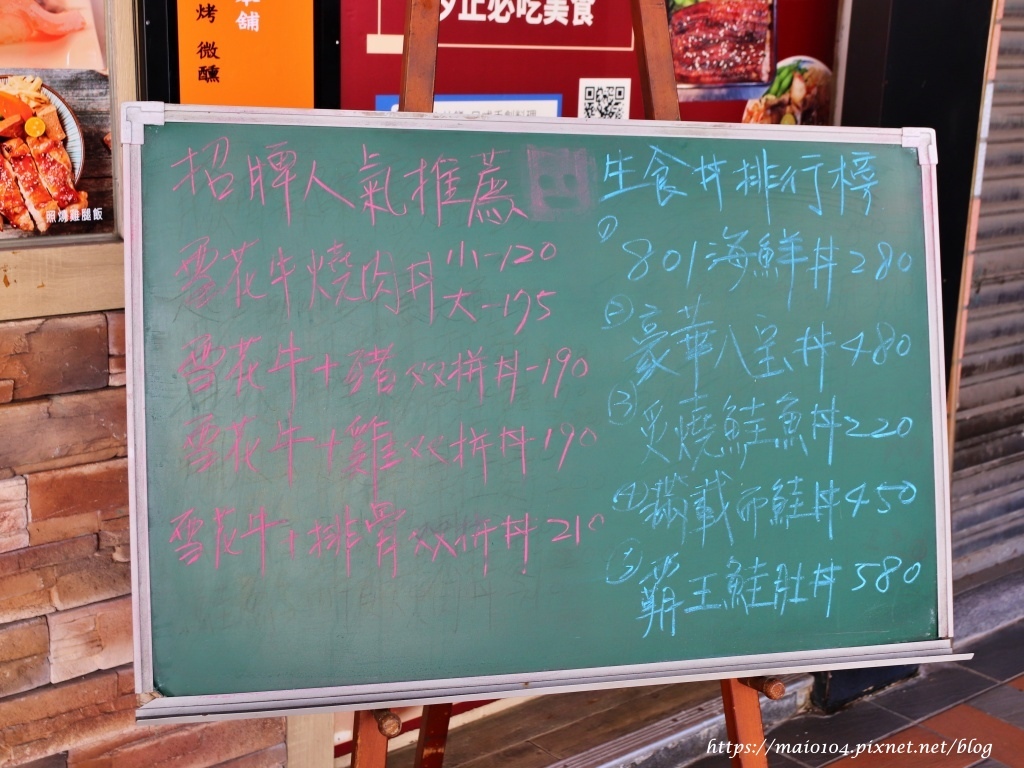 本舖
烤 微醺
必吃美食
照燒雞腿飯
招牌人氣推薦
雪花牛燒肉丼 小-120
大-175
雪花牛+豬双拼丼-190
雪花牛+雞双拼丼190
雪花牛+排骨双拼丼210
生食丼排行榜
① 801海鮮丼280
② 豪華八宝丼480
③ 炙燒鮭魚丼220
④ 滿載而鮭丼450
⑤ 霸王鮭肚丼580
https://maio104.pixnet.net/blog